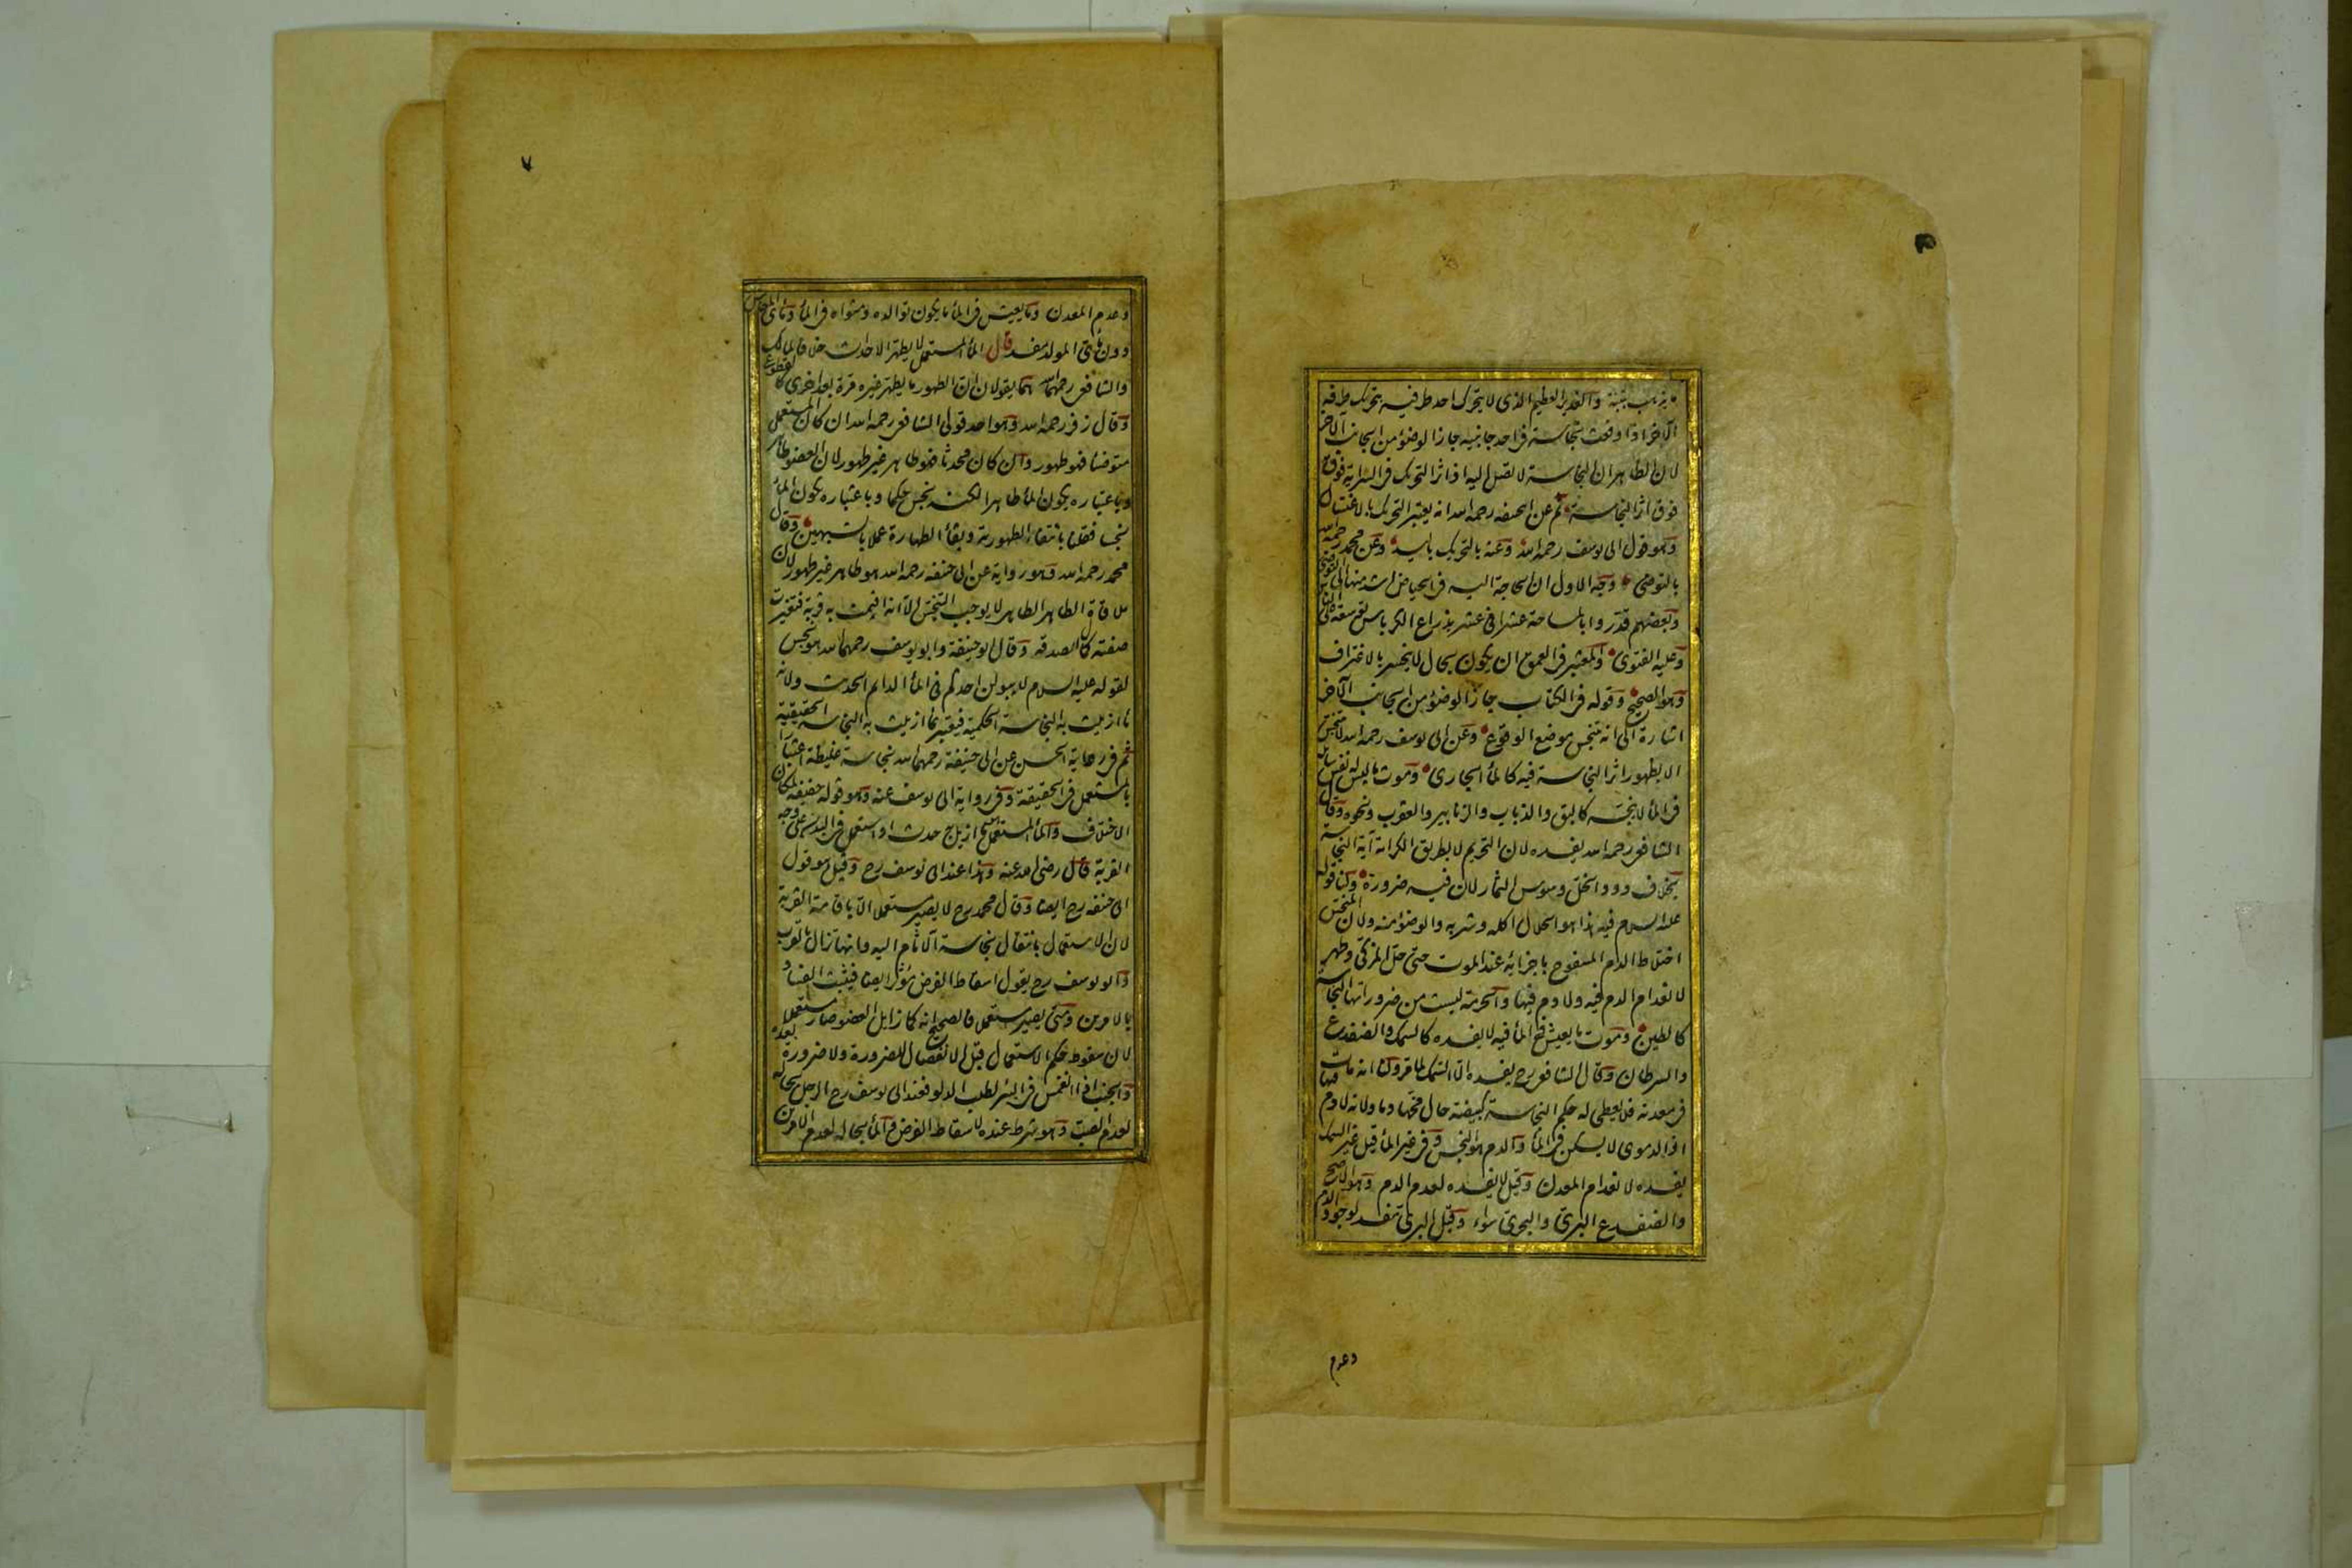 ما يزيد بتبنة والغدير العظيم الذى لا يتحرك احد طرفيه بتحريك طرفه
الآخر اذا وقعت نجاسة فى احد جانبيه جاز الوضوء من الجانب الآخر
لان الظاهر ان النجاسة لا تصل اليه اذ اثر التحريك فى السراية فوق
فوق اثر النجاسة ثم عن ابى حنيفه رحمه الله انه يعتبر التحريك بالاغتسال
وهو قول ابى يوسف رحمه الله وعنه بالتحريك باليد وعن محمد رحمه الله
بالتوضى وجه الاول ان الحاجة اليه فى الحياض اشد منها الى التوضى
وبعضهم قدروا بالمساحة عشرا فى عشر بذراع الكرباس توسعة للامر على الناس
وعليه الفتوى والمعتبر فى العمق ان يكون بحال لا ينحسر بالاغتراف
وهو الصحيح وقوله فى الكتاب جاز الوضوء من الجانب الآخر
اشارة الى انه تنجس موضع الوقوع وعن ابى يوسف رحمه الله لا يتنجس
الا بظهور اثر النجاسة فيه كالماء الجارى وموت ما ليس له نفس سايله
فى الماء لا ينجسه كالبق والذباب والزنابير والعقرب ونحوه وقال
الشافعى رحمه الله يفسده لان التحريم لا بطريق الكرامة آية النجاسة
بخلاف دود الخل وسوس الثمار لان فيه ضرورة ولنا قوله
عليه السلام فيه هذا هو الحلال اكله وشربه والوضوء منه ولان المنجس
اختلاط الدم المسفوح باجزائه عند الموت حتى حل المزكى وطهر
لانعدام الدم فيه ولا دم فيها والحرمة ليست من ضروراتها النجاسة
كالطين وموت ما يعيش فى الماء فيه لا يفسده كالسمك والضفدع
والسرطان وقال الشافعى رح يفسده الا السمك لما مر ولنا انه مات
فى معدنه فلا يعطى له حكم النجاسة كبيضة حال محها دما ولانه لا دم فيها
اذ الدموى لا يسكن فى الماء والدم هو النجس وفى غير الماء قيل غير السمك
يفسده لانعدام المعدن وقيل لا يفسده لعدم الدم وهو الاصح
والضفدع البرى والبحرى سواء وقيل البرى تفسد لوجود الدم
وعدم
٧
وعدم المعدن وما يعيش فى الماء ما يكون توالده ومثواه فى الماء ومائى المعاش
دون مائى المولد مفسد قال الماء المستعمل لا يطهر الاحداث خلافا لمالك
والشافعى رحمهما الله هما يقولان ان الطهور ما يطهر غيره مرة بعد اخرى كالقطوع
وقال زفر رحمه الله وهو احد قولى الشافعى رحمه الله ان كان المستعمل
متوضئا فهو طهور وان كان محدثا فهو طاهر غير طهور لان العضو طاهر
وباعتباره يكون الماء طاهرا لكنه نجس حكما وباعتباره يكون الماء
نجسا فقلنا بانتفاء الطهورية وبقاء الطهارة عملا بالشبهين وقال
محمد رحمه الله وهو رواية عن ابى حنيفه رحمه الله هو طاهر غير طهور لان
ملاقاة الطاهر الطاهر لا يوجب التنجس الا انه اقيمت به قربة فتغيرت
صفته كمال الصدقه وقال ابو حنيفة وابو يوسف رحمهما الله هو نجس
لقوله عليه السلام لا يبولن احدكم فى الماء الدائم الحديث ولانه
ما ازيلت به النجاسة الحكمية فيعتبر بما ازيلت به النجاسة الحقيقية
ثم فى رواية الحسن عن ابى حنيفة رحمهما الله نجاسة غليظة اعتبارا
بالمستعمل فى الحقيقة وفى رواية ابى يوسف عنه وهو قوله خفيفة لمكان
الاختلاف والماء المستعمل ما ازيل به حدث او استعمل فى البدن على وجه
القربة قال رضى الله عنه وهذا عند ابى يوسف رح وقيل هو قول
ابى حنيفه رح ايضا وقال محمد رح لا يصير مستعملا الا باقامة القربة
لان الاستعمال بانتقال نجاسة الآثام اليه وانها تزال بالقرب
وابو يوسف رح يقول اسقاط الفرض مؤثر ايضا فيثبت الفساد
بالامرين ومتى يصير مستعملا فالصحيح انه كما زايل العضو صار مستعملا
لان سقوط حكم الاستعمال قبل الانفصال للضرورة ولا ضرورة بعده
والجنب اذا انغمس فى البئر لطلب الدلو فعند ابى يوسف رح الرجل بحاله
لعدم الصب وهو شرط عنده لاسقاط الفرض والماء بحاله لعدم الامرين